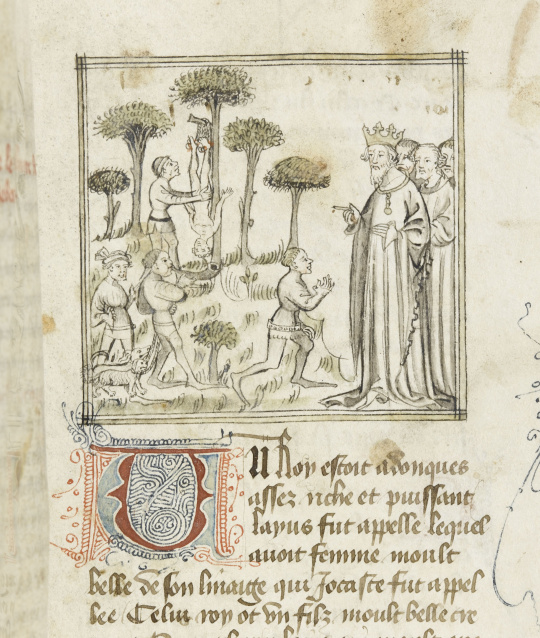 Un Roy estoit adonques
assez riche et puissant
layus fut appelle lequel
auoit femme moult
belle de son linaige qui Jocaste fut appel
lee Celui roy ot vn filz moult belle cre